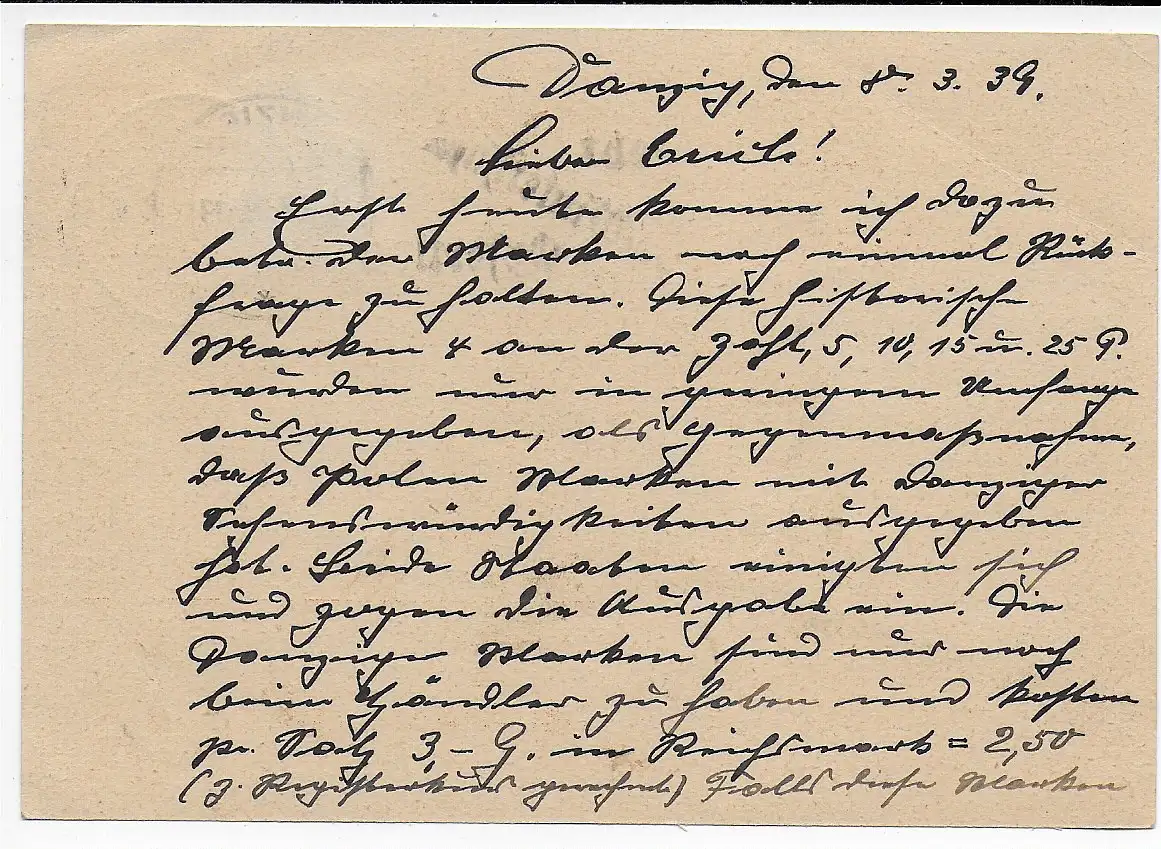 Danzig, den 8. 3. 39.
Lieber Erich!
Erst heute komme ich dazu
betr. der Marken noch einmal Rück-
frage zu halten. Diese historische
Marken 4 an der Zahl, 5, 10, 15 u. 25 P.
wurden nur in geringem Umfange
ausgegeben, als Gegenmaßnahme,
daß Polen Marken mit Danziger
Sehenswürdigkeiten ausgegeben
hat. Beide Staaten einigten sich
und zogen die Ausgabe ein. Die
Danziger Marken sind nur noch
beim Händler zu haben und kosten
pr. Satz 3,– G. in Reichsmark = 2,50
(z. Registerkurs gerechnet) Falls diese Marken